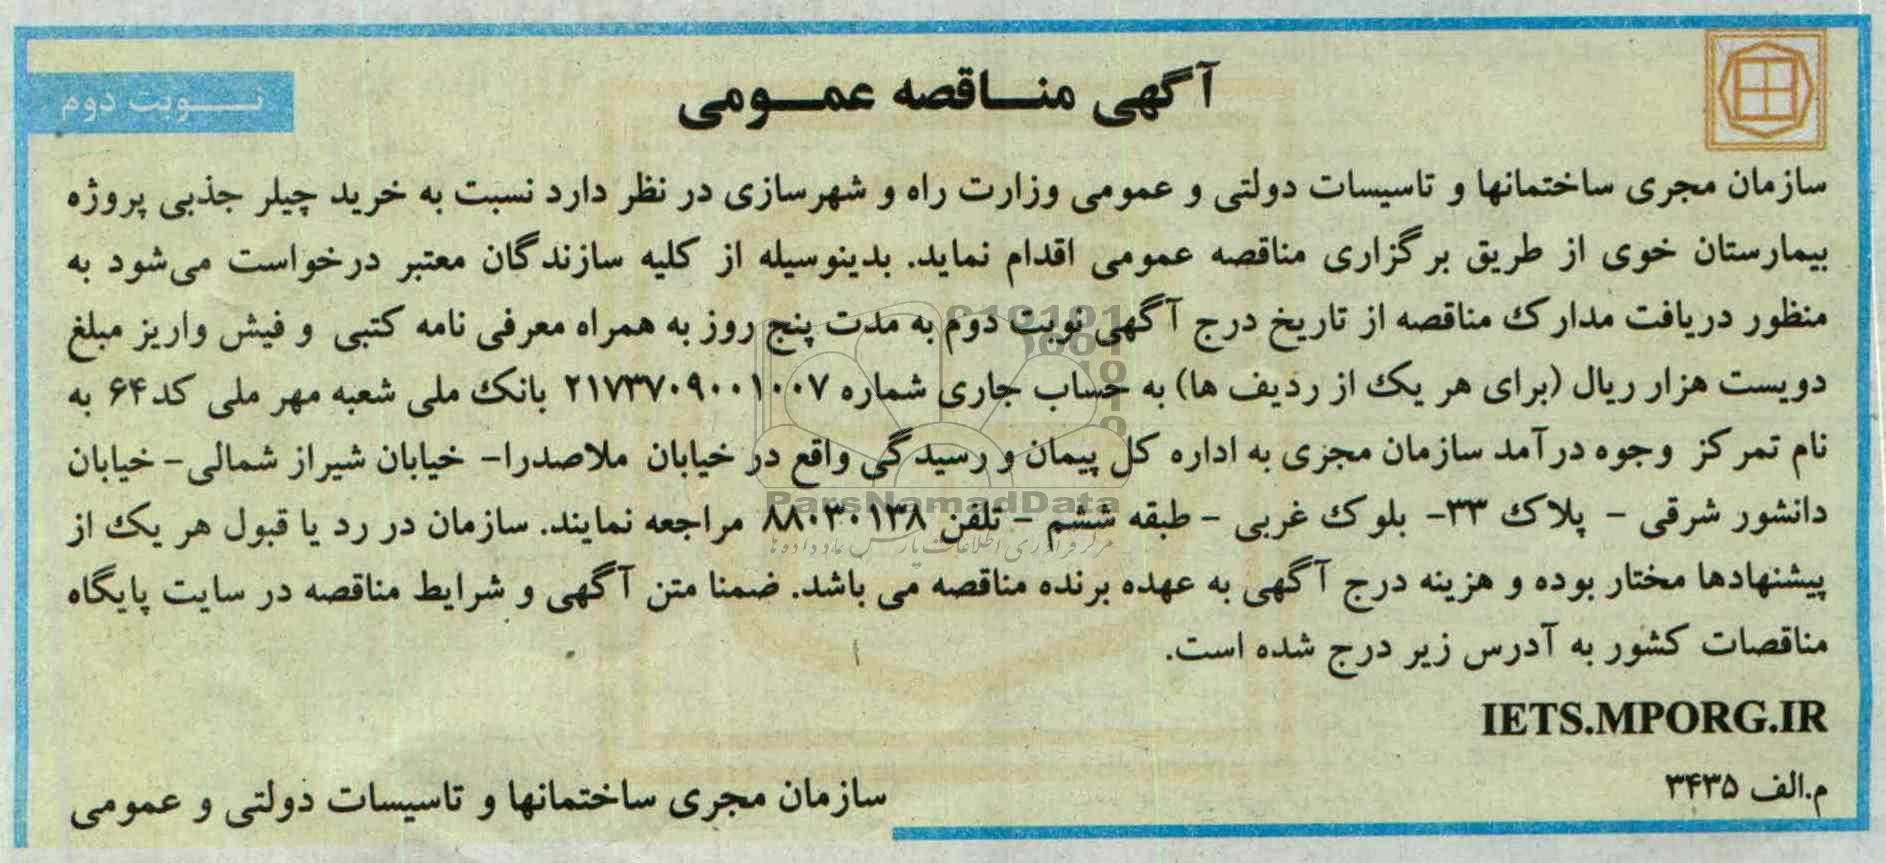 آگهی مناقصه عمومی
نوبت دوم
سازمان مجری ساختمانها و تاسیسات دولتی و عمومی وزارت راه و شهرسازی در نظر دارد نسبت به خرید چیلر جذبی پروژه
بیمارستان خوی از طریق برگزاری مناقصه عمومی اقدام نماید. بدینوسیله از کلیه سازندگان معتبر درخواست می‌شود به
منظور دریافت مدارک مناقصه از تاریخ درج آگهی نوبت دوم به مدت پنج روز به همراه معرفی نامه کتبی و فیش واریز مبلغ
دویست هزار ریال (برای هر یک از ردیف ها) به حساب جاری شماره ۲۱۷۳۷۰۹۰۰۱۰۰۷ بانک ملی شعبه مهر ملی کد۶۴ به
نام تمرکز وجوه درآمد سازمان مجزی به اداره کل پیمان و رسیدگی واقع در خیابان ملاصدرا- خیابان شیراز شمالی- خیابان
دانشور شرقی - پلاک ۳۳- بلوک غربی - طبقه ششم - تلفن ۸۸۰۳۰۱۳۸ مراجعه نمایند. سازمان در رد یا قبول هر یک از
پیشنهادها مختار بوده و هزینه درج آگهی به عهده برنده مناقصه می باشد. ضمنا متن آگهی و شرایط مناقصه در سایت پایگاه
مناقصات کشور به آدرس زیر درج شده است.
IETS.MPORG.IR
م.الف ۳۴۳۵
سازمان مجری ساختمانها و تاسیسات دولتی و عمومی
ParsNamadData